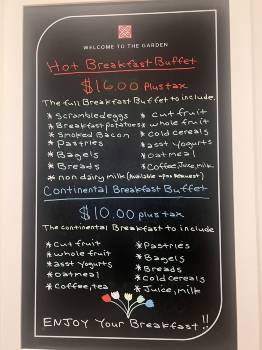 WELCOME TO THE GARDEN
Hot Breakfast Buffet
$16.00 Plus tax
The full Breakfast Buffet to include.
* Scrambled eggs
* Breakfast potatoes
* Smoked Bacon
* Pastries
* Bagels
* Breads
* non dairy milk (Available upon Request)
* Cut fruit
* whole fruit
* Cold cereals
* asst Yogurts
* oatmeal
* Coffee, Juice, milk
Continental Breakfast Buffet
$10.00 plus tax
The continental Breakfast to include
* Cut fruit
* whole fruit
* asst Yogurts
* oatmeal
* Coffee, tea
* Pastries
* Bagels
* Breads
* Cold cereals
* Juice, milk
ENJOY Your Breakfast!!